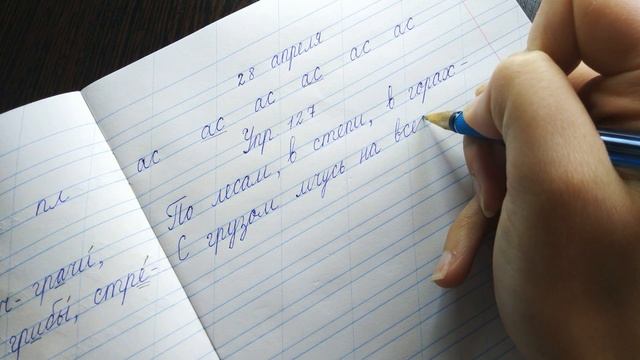 28 апреля
ас ас ас ас ас ас
Упр 127
По лесам, в степи, в горах -
С грузом мчусь на все
пл
ч- грачи́,
грибы́, стре́-